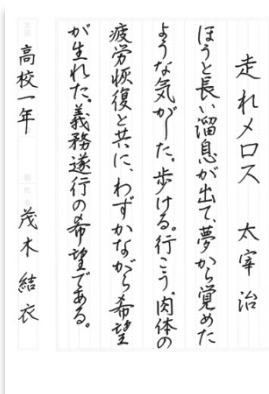 走れメロス　太宰治
ほうと長い溜息が出て、夢から覚めた
ような気がした。歩ける。行こう。肉体の
疲労恢復と共に、わずかながら希望
が生れた。義務遂行の希望である。
高校一年　茂木結衣